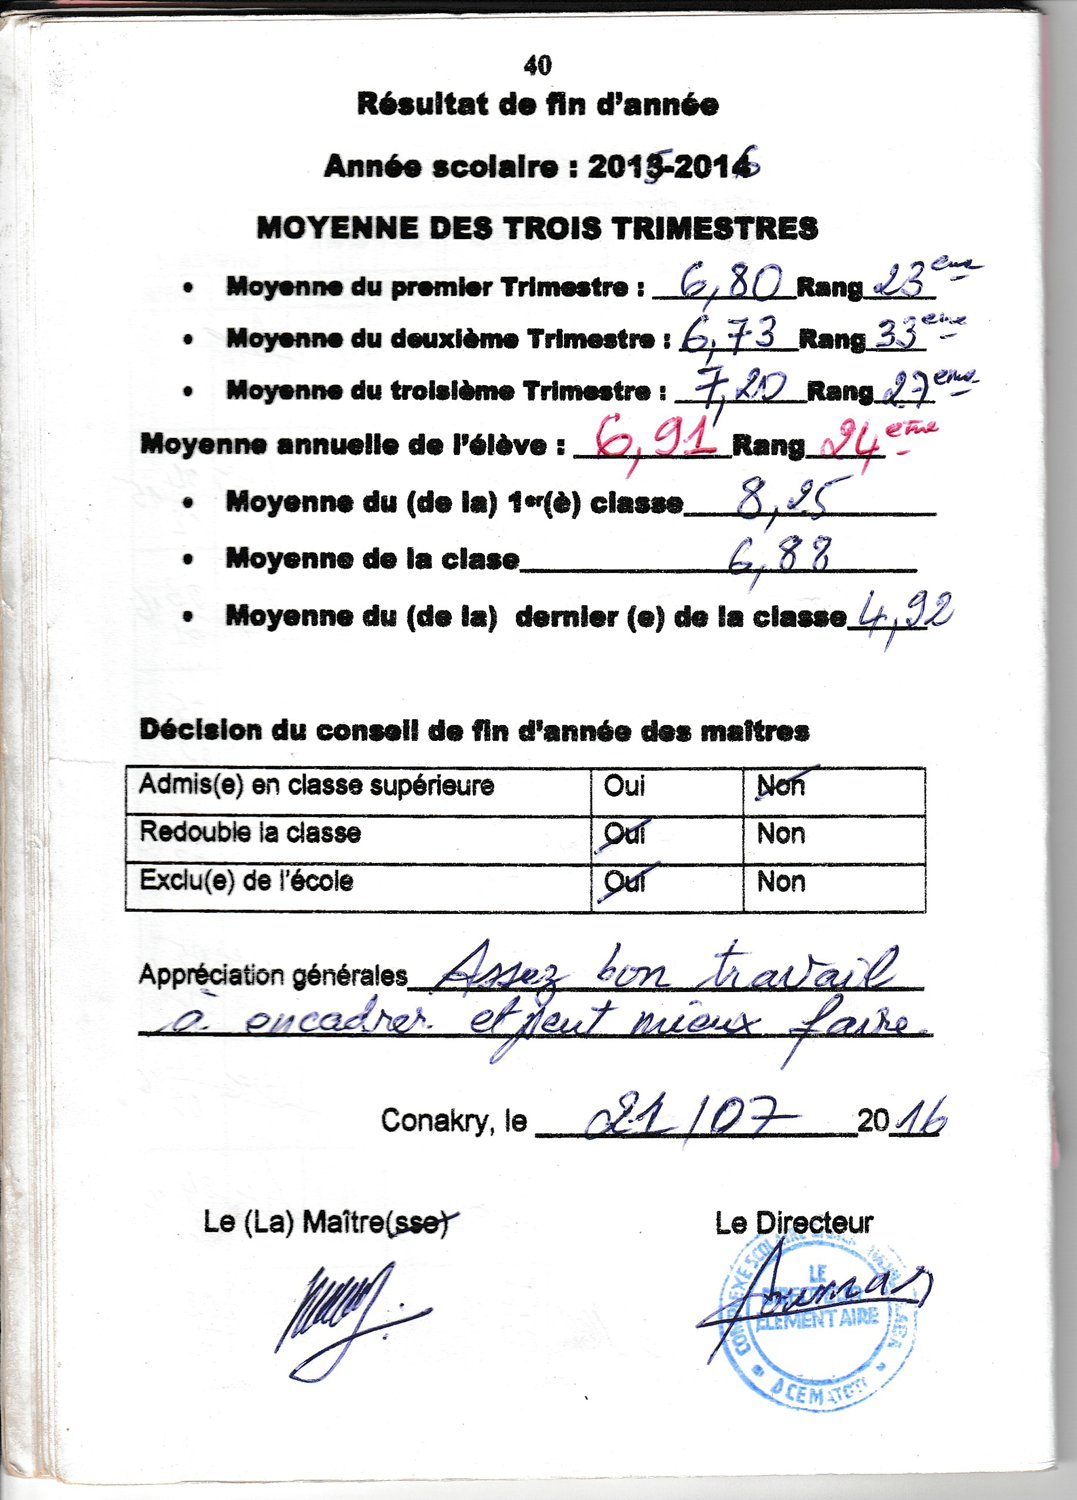 40
Résultat de fin d'année
Année scolaire : 2015-2016
MOYENNE DES TROIS TRIMESTRES
• Moyenne du premier Trimestre : 6,80 Rang 23ème
• Moyenne du deuxième Trimestre : 6,73 Rang 33ème
• Moyenne du troisième Trimestre : 7,20 Rang 27ème
Moyenne annuelle de l'élève : 6,91 Rang 24ème
• Moyenne du (de la) 1er(è) classe 8,25
• Moyenne de la clase 6,88
• Moyenne du (de la) dernier (e) de la classe 4,92
Décision du conseil de fin d'année des maîtres
Admis(e) en classe supérieure Oui Non
Redouble la classe Oui Non
Exclu(e) de l'école Oui Non
Appréciation générales Assez bon travail
à encadrer et peut mieux faire.
Conakry, le 21/07 2016
Le (La) Maître(sse)
Le Directeur
SCOLAIRE
LE
ELEMENTAIRE